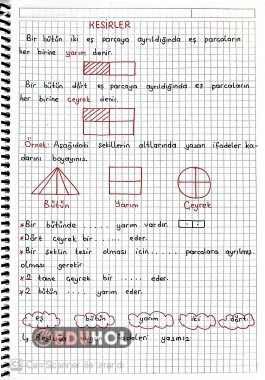 KESİRLER
Bir bütün iki eş parçaya ayrıldığında eş parçaların
her birine yarım denir.
Bir bütün dört eş parçaya ayrıldığında eş parçaların
her birine çeyrek denir.
Örnek: Aşağıdaki şekillerin altlarında yazan ifadeler ka-
darını boyayınız.
Bütün Yarım Çeyrek
*Bir bütünde ..... yarım vardır.
*Dört çeyrek bir ..... eder.
*Bir şeklin yarım olması için ...... parçalara ayrılmış
olması gerekir
*2 tane çeyrek bir ..... eder.
*2 bütün ..... yarım eder.
eş bütün yarım iki dört
EDUHOL
CamScanner ile tarandı